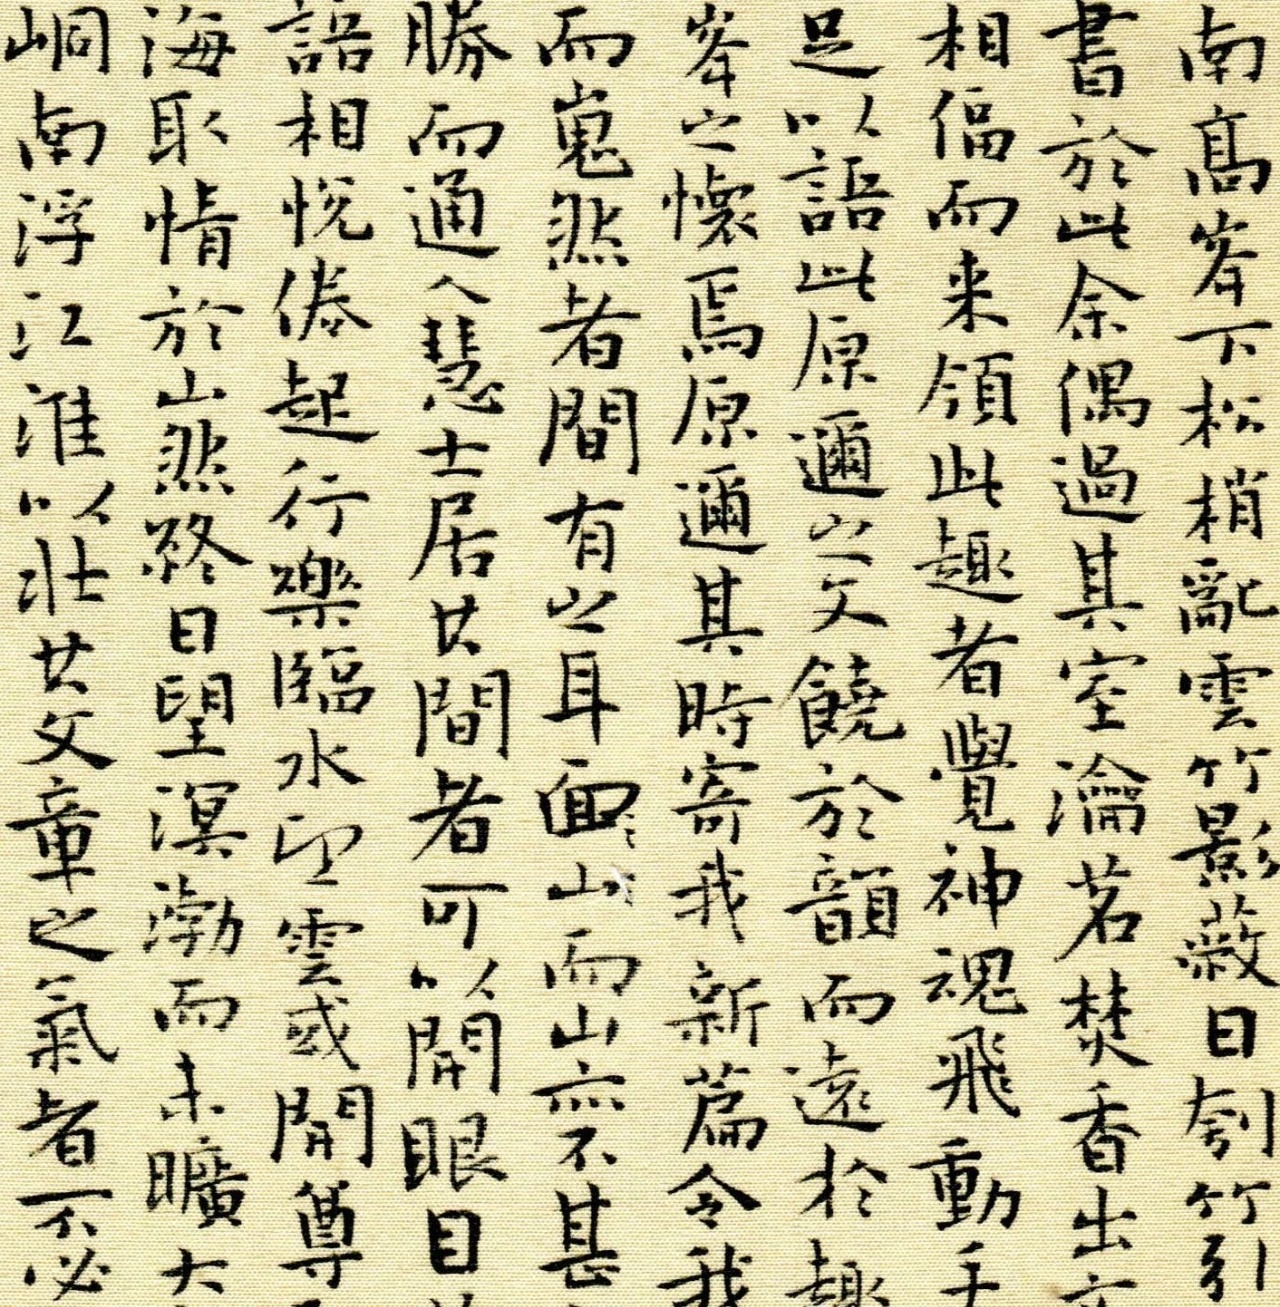 南高峯下松梢亂雲竹影蔽日刳竹引
書於此余偶過其室瀹茗焚香出
相偪而来領此趣者覺神魂飛動手
足以語此原邇之文饒於韻而遠於趣
峯之懷焉原邇其時寄我新篇令我
而嵬然者間有之耳面山而山亦不甚
勝而通人慧士居其間者可以開眼目
語相悦倦起行樂臨水印雲或開尊
海取情於山然終日望溟渤而未曠大
峒南浮江淮以壮其文章之氣者可不必